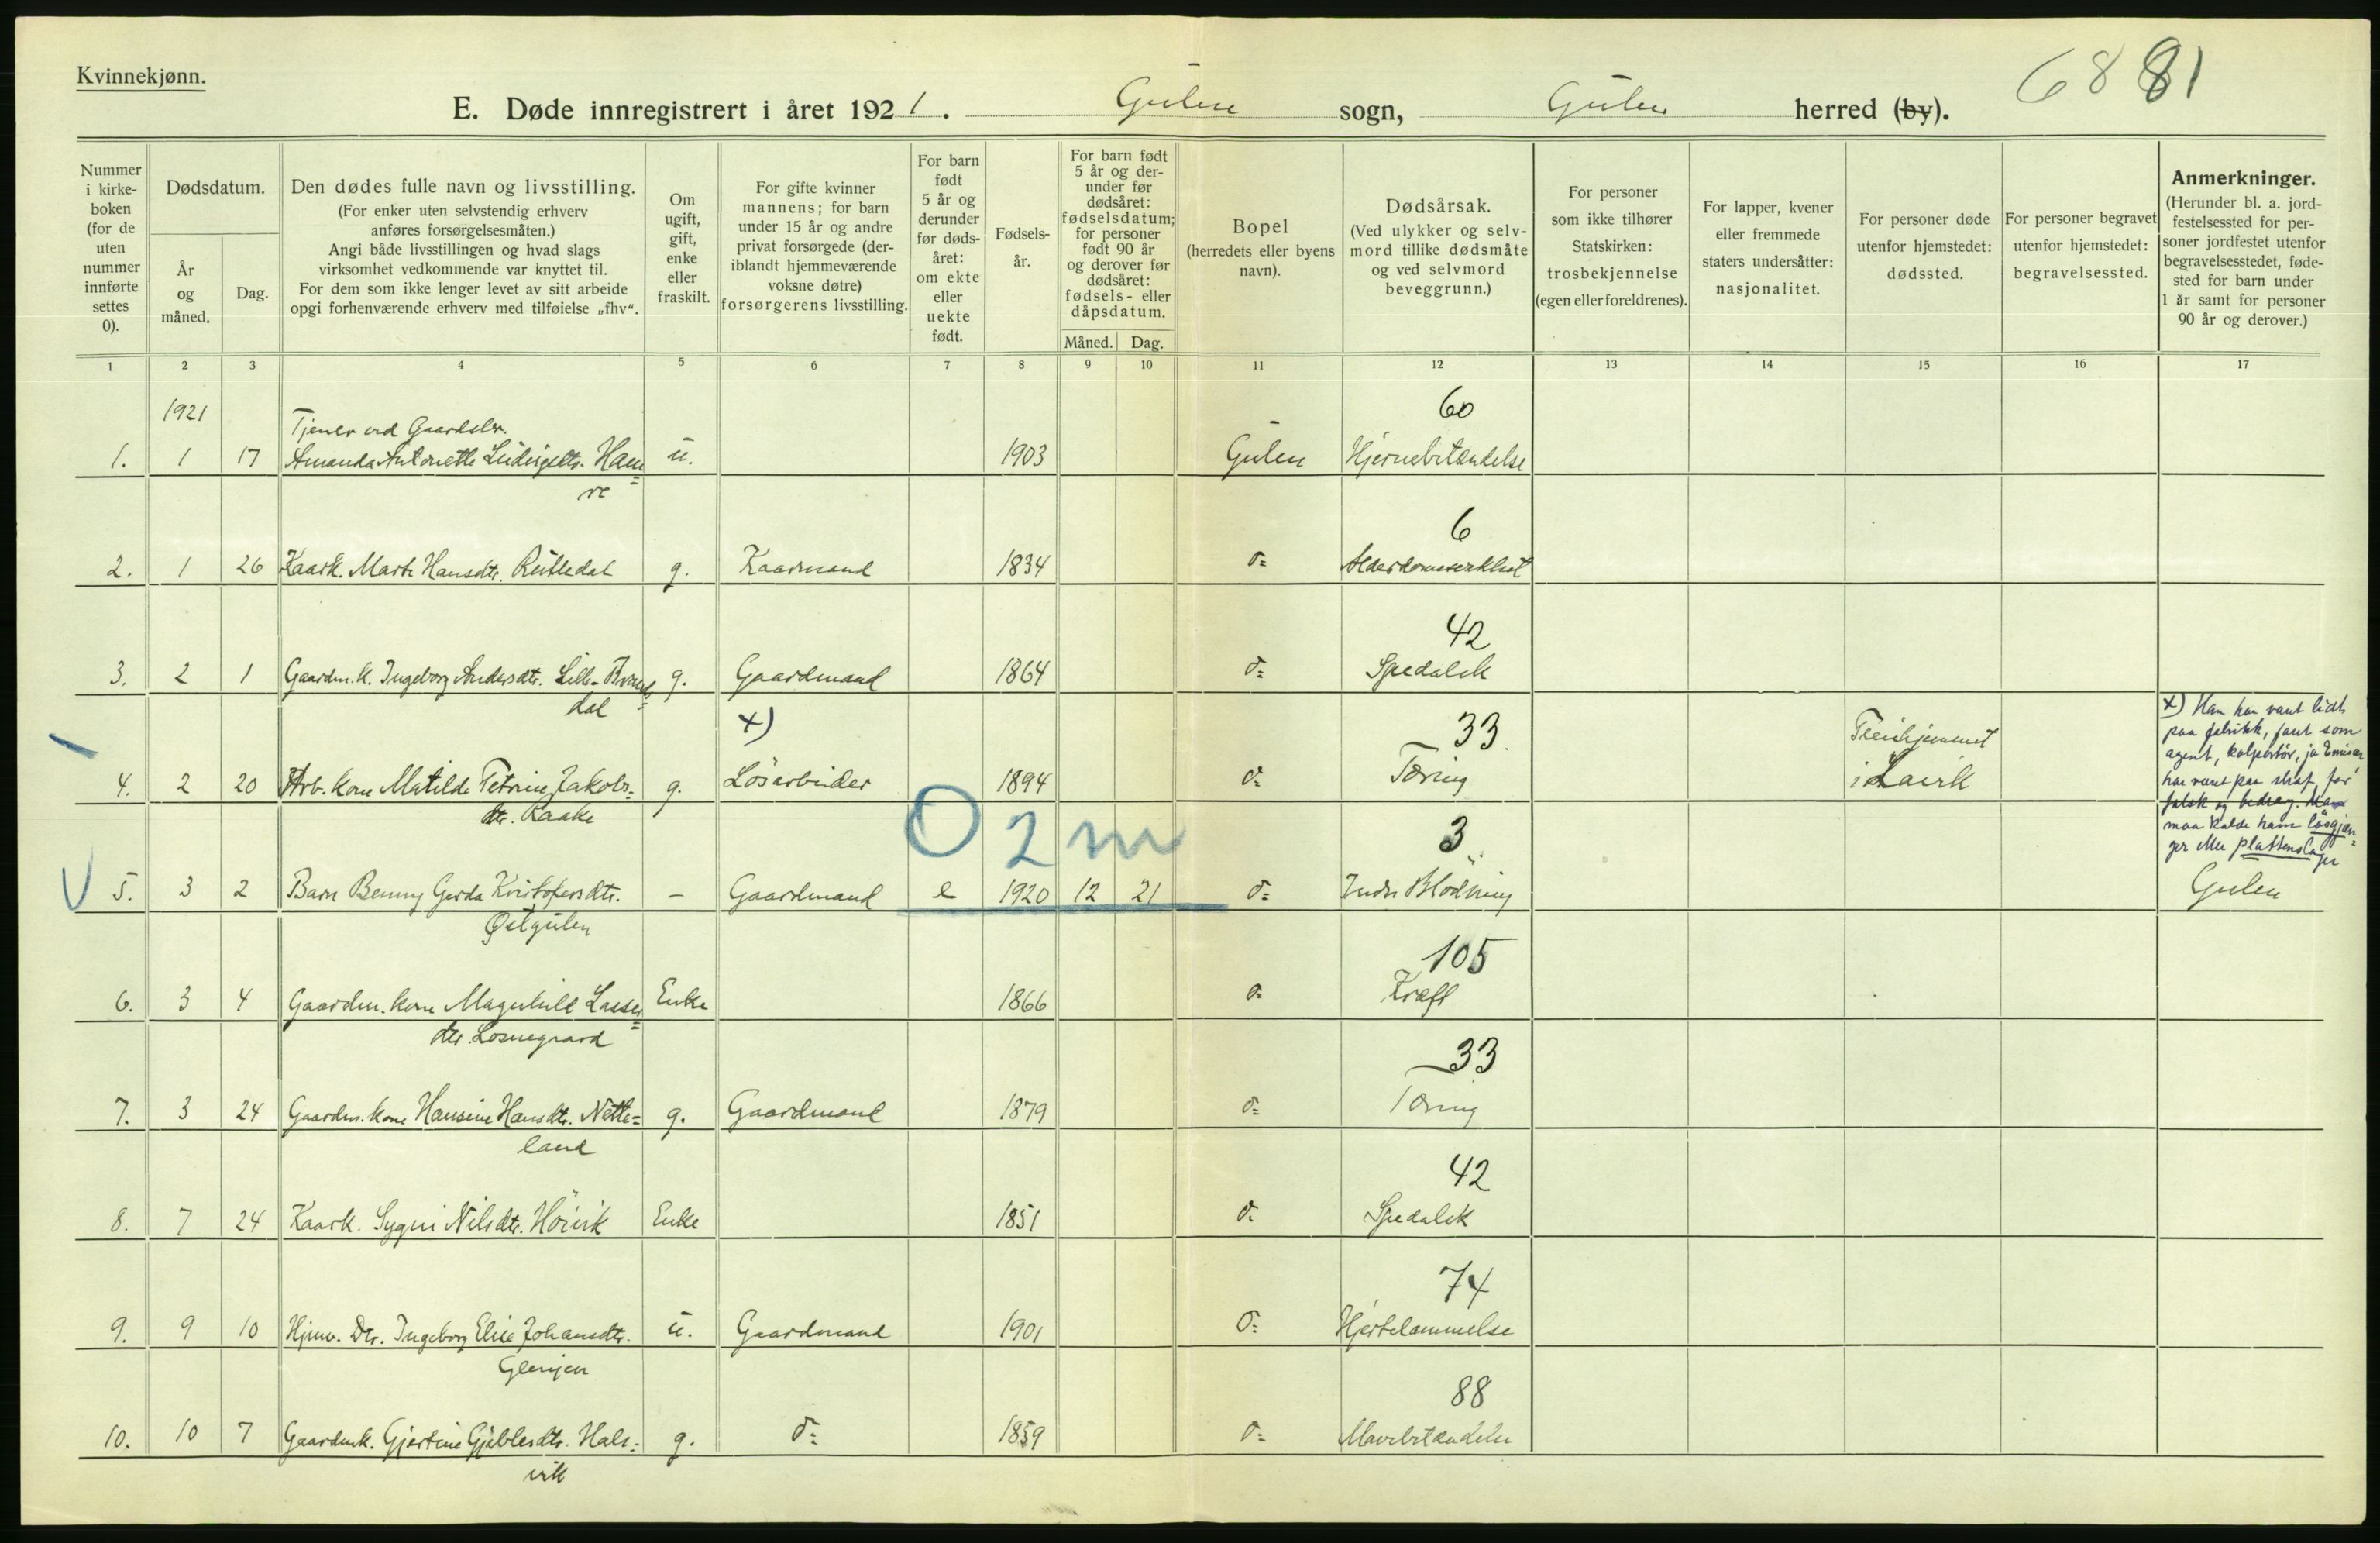 Kvinnekjønn.
6881
E. Døde innregistrert i året 1921. Gulen sogn, Gulen herred (by).
Nummer i kirkeboken (for de uten nummer innførte settes 0).
Dødsdatum.
År og måned.
Dag.
Den dødes fulle navn og livsstilling.
(For enker uten selvstendig erhverv
anføres forsørgelsesmåten.)
Angi både livsstillingen og hvad slags
virksomhet vedkommende var knyttet til.
For dem som ikke lenger levet av sitt arbeide
opgi forhenværende erhverv med tilføielse „fhv“.
Om ugift, gift, enke eller fraskilt.
For gifte kvinner
mannens; for barn
under 15 år og andre
privat forsørgede (der-
iblandt hjemmeværende
voksne døtre)
forsørgerens livsstilling.
For barn født 5 år og derunder før dødsåret: om ekte eller uekte født.
Fødsels-
år.
For barn født
5 år og der-
under før
dødsåret:
fødselsdatum;
for personer
født 90 år
og derover før
dødsåret:
fødsels- eller
dåpsdatum.
Måned. Dag.
Bopel
(herredets eller byens
navn).
Dødsårsak.
(Ved ulykker og selv-
mord tillike dødsmåte
og ved selvmord
beveggrunn.)
For personer
som ikke tilhører
Statskirken:
trosbekjennelse
(egen eller foreldrenes).
For lapper, kvener
eller fremmede
staters undersåtter:
nasjonalitet.
For personer døde
utenfor hjemstedet:
dødssted.
For personer begravet
utenfor hjemstedet:
begravelsessted.
Anmerkninger.
(Herunder bl. a. jord-
festelsessted for per-
soner jordfestet utenfor
begravelsesstedet, føde-
sted for barn under
1 år samt for personer
90 år og derover.)
1 2 3 4 5 6 7 8 9 10 11 12 13 14 15 16 17
1921 60
Tjener ved
1. 1 17 Amanda Antonette Ludvigsdtr. Ham= u. 1903 Gulen Hjernebetændelse
re
6
2. 1 26 Kaark. Marte Hansdtr. Rutledal g. Kaarmand 1834 d= Alderdomssvakhet
42
3. 2 1 Gaardm.k. Ingeborg Andersdtr. Lille- g. Gaardmand 1864 d= Spedalsk
dal
x) 33 Pleiehjemmet
4. 2 20 Arb. kone Matilde Petrine Jakobs= g. Løsarbeider 1894 d= Tæring i Lavik
dtr. Raake
x) Han har vært lidt
paa fabrikk, som
agent, kolportør, ja
har vært paa straf for
falsk og bedrag. Man
maa kalde ham løsgjæn=
ger eller plattenslager
0 2 m 3
5. 3 2 Barn Benny Gerda Kristofersdtr. – Gaardmand e 1920 12 21 d= Indre Blødning Gulen
Østgulen
105
6. 3 4 Gaardm. kone Magnhild Lasse= Enke 1866 d= Kræft
dtr. Losnegaard
33
7. 3 24 Gaardm. kone Hansine Hansdtr. Nette= g. Gaardmand 1879 d= Tæring
land
42
8. 7 24 Kaark. Sygni Nilsdtr. Høivik Enke 1851 d= Spedalsk
74
9. 9 10 Hjmv. Dtr. Ingeborg Elise Johansdtr. u. Gaardmand 1901 d= Hjertelammelse
Glenjen
88
10. 10 7 Gaardmk. Gjertine Gjæblesdtr. Hals= g. d= 1859 d= Mavebetændelse
vik